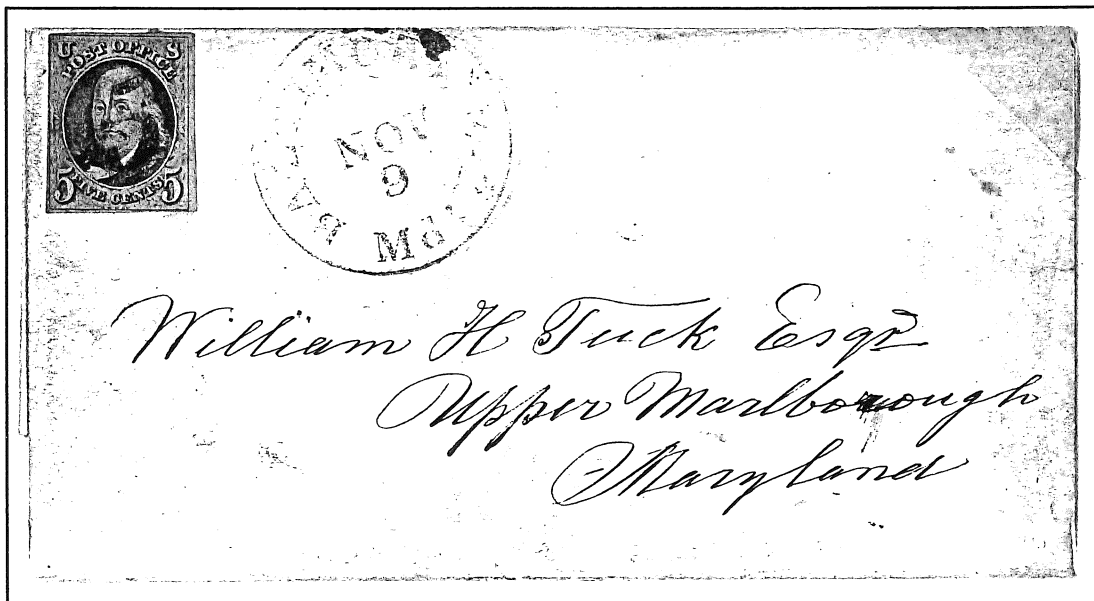 U S
POST OFFICE
5 FIVE CENTS 5
NOV
9
William H Tuck Esqr
Upper Marlborough
Maryland